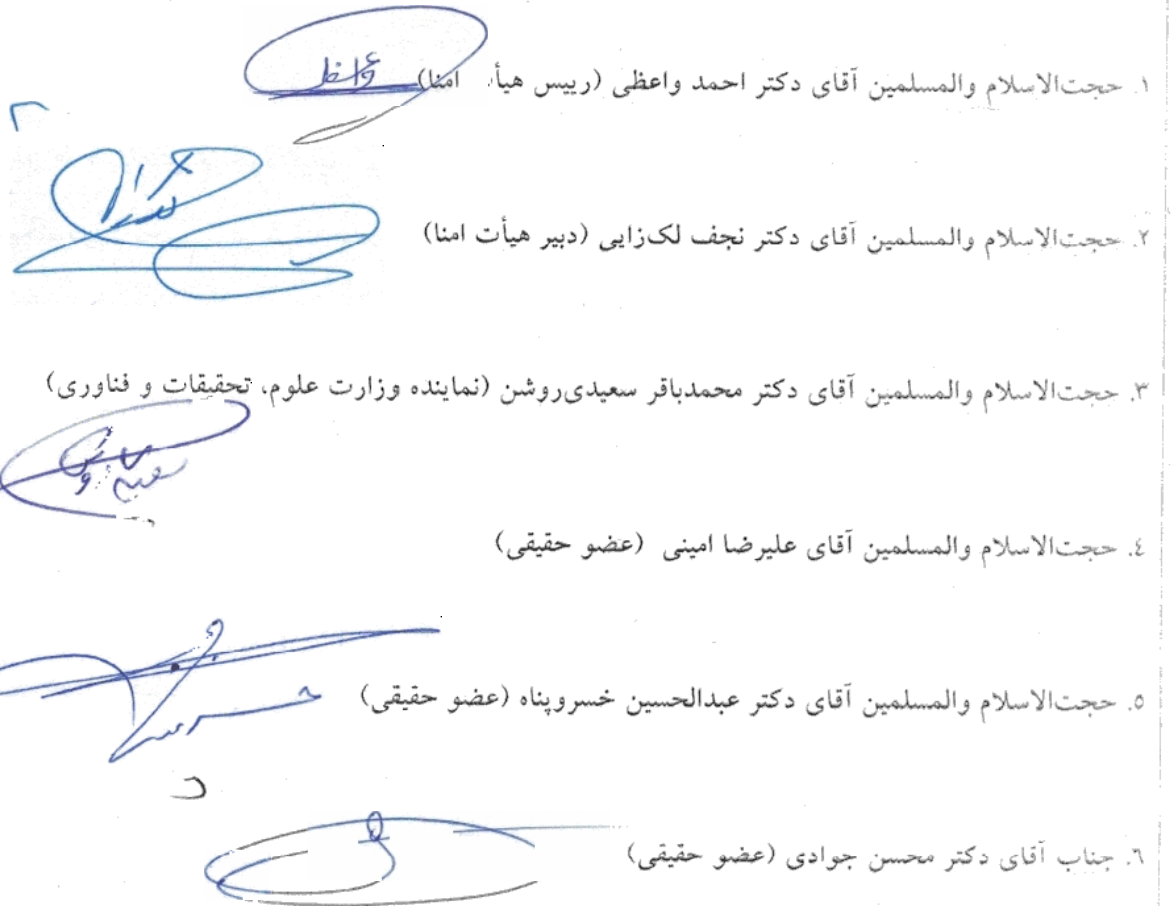 ۱. حجت‌الاسلام والمسلمین آقای دکتر احمد واعظی (رییس هیأ امنا)
۲. حجت‌الاسلام والمسلمین آقای دکتر نجف لک‌زایی (دبیر هیأت امنا)
۳. حجت‌الاسلام والمسلمین آقای دکتر محمدباقر سعیدی‌روشن (نماینده وزارت علوم، تحقیقات و فناوری)
٤. حجت‌الاسلام والمسلمین آقای علیرضا امینی (عضو حقیقی)
٥. حجت‌الاسلام والمسلمین آقای دکتر عبدالحسین خسروپناه (عضو حقیقی)
٦. جناب آقای دکتر محسن جوادی (عضو حقیقی)